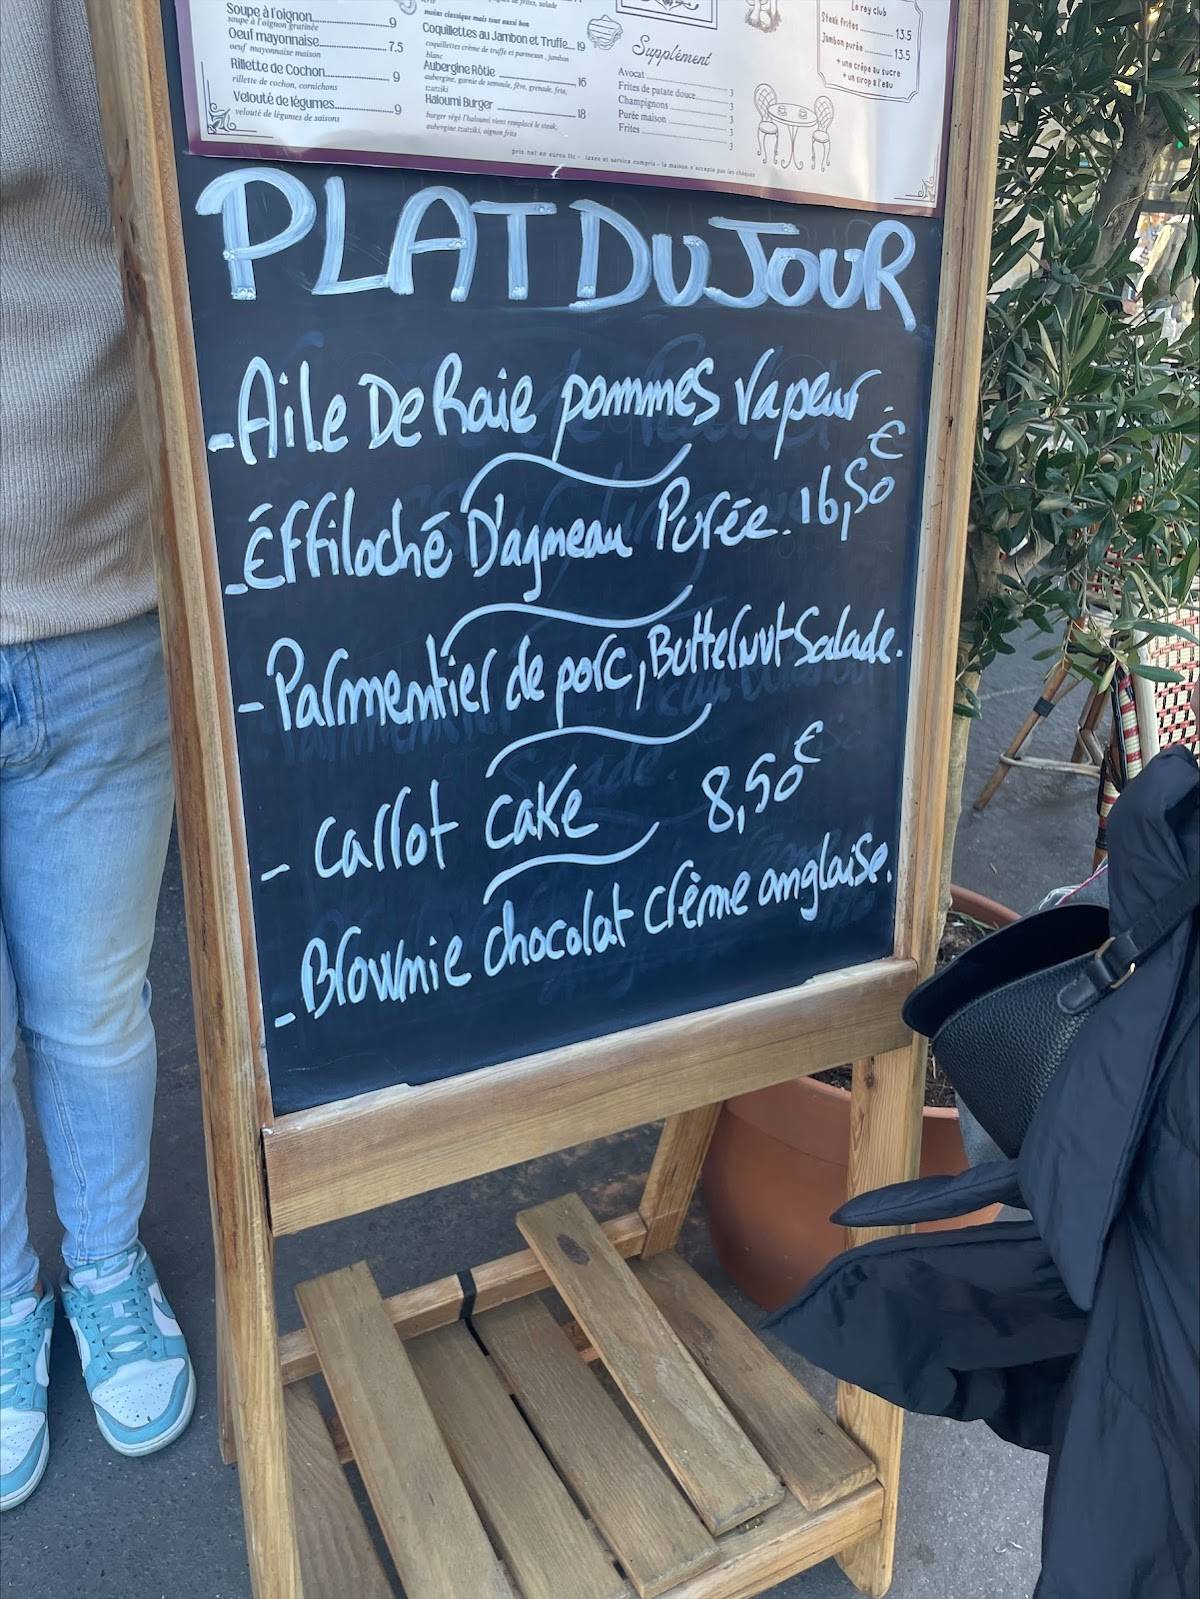 Soupe à l'oignon 9
soupe à l'oignon gratinée
Oeuf mayonnaise 7.5
oeuf mayonnaise maison
Rillette de Cochon 9
rillette de cochon, cornichons
Velouté de légumes 9
velouté de légumes de saisons
moins classique mais tout aussi bon
Coquillettes au Jambon et Truffe 19
coquillettes crème de truffe et parmesan, jambon
blanc
Aubergine Rôtie 16
aubergine, garnie de semoule, fève, grenade, feta,
tzatziki
Haloumi Burger 18
burger végé l'haloumi vient remplacé le steak,
aubergine tzatziki, oignon frits
Supplément
Avocat 3
Frites de patate douce 3
Champignons 3
Purée maison 3
Frites 3
Le roy club
Steak frites 13.5
Jambon purée 13.5
+ une crêpe au sucre
+ un sirop à l'eau
prix net en euros ttc - taxes et service compris - la maison n'accepte pas les chèques
PLAT DU JOUR
- Aile De Raie pommes vapeur.
- Effiloché D'agneau Purée. 16,50€
- Parmentier de porc, Butternut Salade.
- Carrot cake 8,50€
- Brownie chocolat crème anglaise.